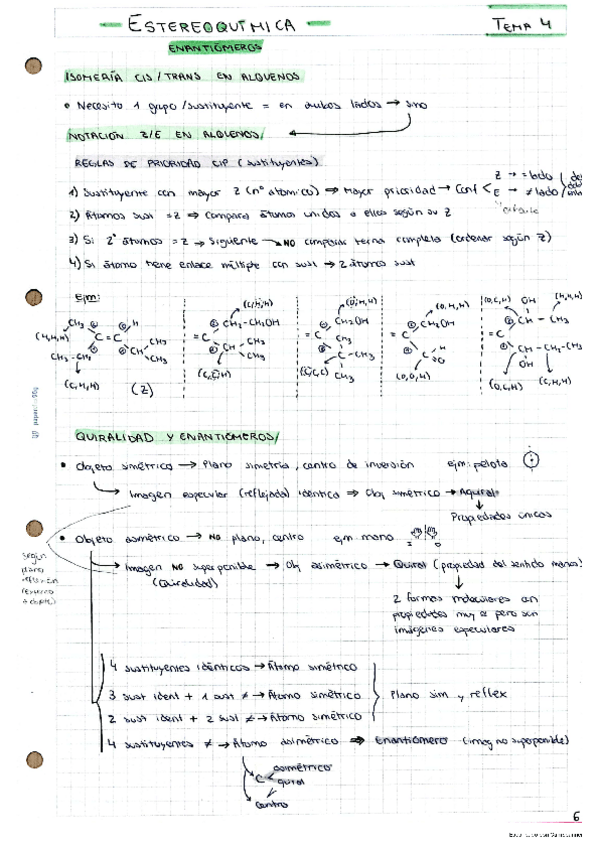 ESTEREOQUÍMICA
TEMA 4
ENANTIÓMEROS
ISOMERÍA CIS/TRANS EN ALQUENOS
• Necesito 1 grupo/sustituyente = en ambos lados → sino
NOTACIÓN Z/E EN ALQUENOS/
REGLAS DE PRIORIDAD CIP (sustituyentes)
1) Sustituyente con mayor Z (nº atómico) ⇒ Mayor prioridad → Conf < Z → = lado
E → ≠ lado
2) Átomos sust = Z ⇒ Comparo átomos unidos a ellos según su Z
3) Si 2º átomos = Z → Siguiente → NO comparar terna completa (ordenar según Z)
4) Si átomo tiene enlace múltiple con sust → 2 átomos sust
Ejm:
CH3 H
(H,H,H) C = C CH3
CH3-CH2 CH CH3
(C,H,H) (Z)
(C,H,H)
CH2-CH2OH
=C
CH-CH3
CH3
(C,C,H)
(O,H,H)
CH2OH
=C CH3
C-CH3
CH3
(C,C,C)
(O,H,H)
CH2OH
=C
C H
O
(O,O,H)
(O,C,H) OH (H,H,H)
CH-CH3
=C
CH-CH2-CH3
OH
(O,C,H) (C,H,H)
QUIRALIDAD Y ENANTIÓMEROS/
• Objeto simétrico → Plano simetría, centro de inversión ejm: pelota
→ Imagen especular (reflejada) idéntica ⇒ Obj simétrico → Aquiral
Propiedades únicas
• Objeto asimétrico → NO plano, centro ejm mano
según
plano
reflexión
(externo
a objeto)
→ Imagen NO superponible → Obj asimétrico → Quiral (propiedad del sentido manos)
(Quiralidad)
2 formas moleculares con
propiedades muy = pero son
imágenes especulares
4 sustituyentes idénticos → Átomo simétrico
3 sust ident + 1 sust ≠ → Átomo simétrico
Plano sim y reflex
2 sust ident + 2 sust ≠ → Átomo simétrico
4 sustituyentes ≠ → Átomo asimétrico ⇒ Enantiómero (imag no superponible)
C < asimétrico
quiral
centro
6